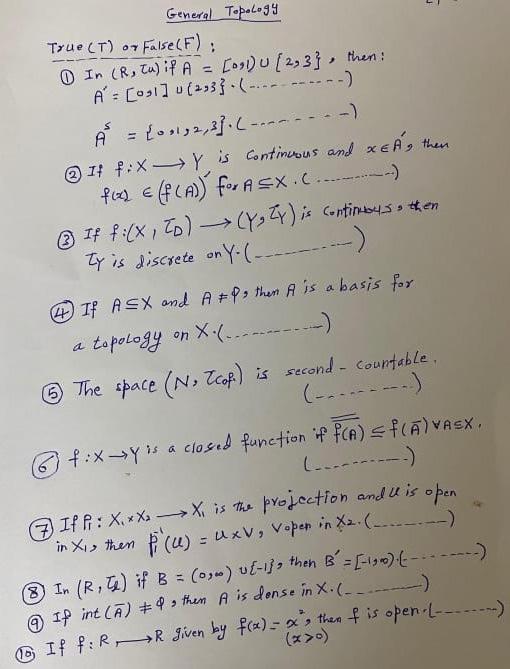 General Topology
True (T) or False (F) :
① In (R, τu) if A = [0,1) ∪ {2,3} , then:
A′ = [0,1] ∪ {2,3}. (-----------)
Aˢ = {0,1,2,3}. (--------)
② If f: X → Y is continuous and x ∈ A′, then
f(x) ∈ (f(A))′ for A ⊆ X. (-----------)
③ If f: (X, τD) → (Y, τY) is continuous, then
τY is discrete on Y. (-----------)
④ If A ⊆ X and A ≠ φ, then A is a basis for
a topology on X. (-----------)
⑤ The space (N, τcof.) is second-countable.
(-----------)
⑥ f: X → Y is a closed function if \overline{f(A)} ⊆ f(Ā) ∀ A ⊆ X.
(-----------)
⑦ If P₁: X₁ × X₂ → X₁ is the projection and U is open
in X₁, then P₁⁻¹(U) = U × V, V open in X₂. (-----------)
⑧ In (R, τℓ) if B = (0,∞) ∪ {-1}, then B′ = [-1,∞). (-----------)
⑨ If int(Ā) ≠ φ, then A is dense in X. (-----------)
⑩ If f: R → R given by f(x) = x², then f is open. (--------)
(x>0)